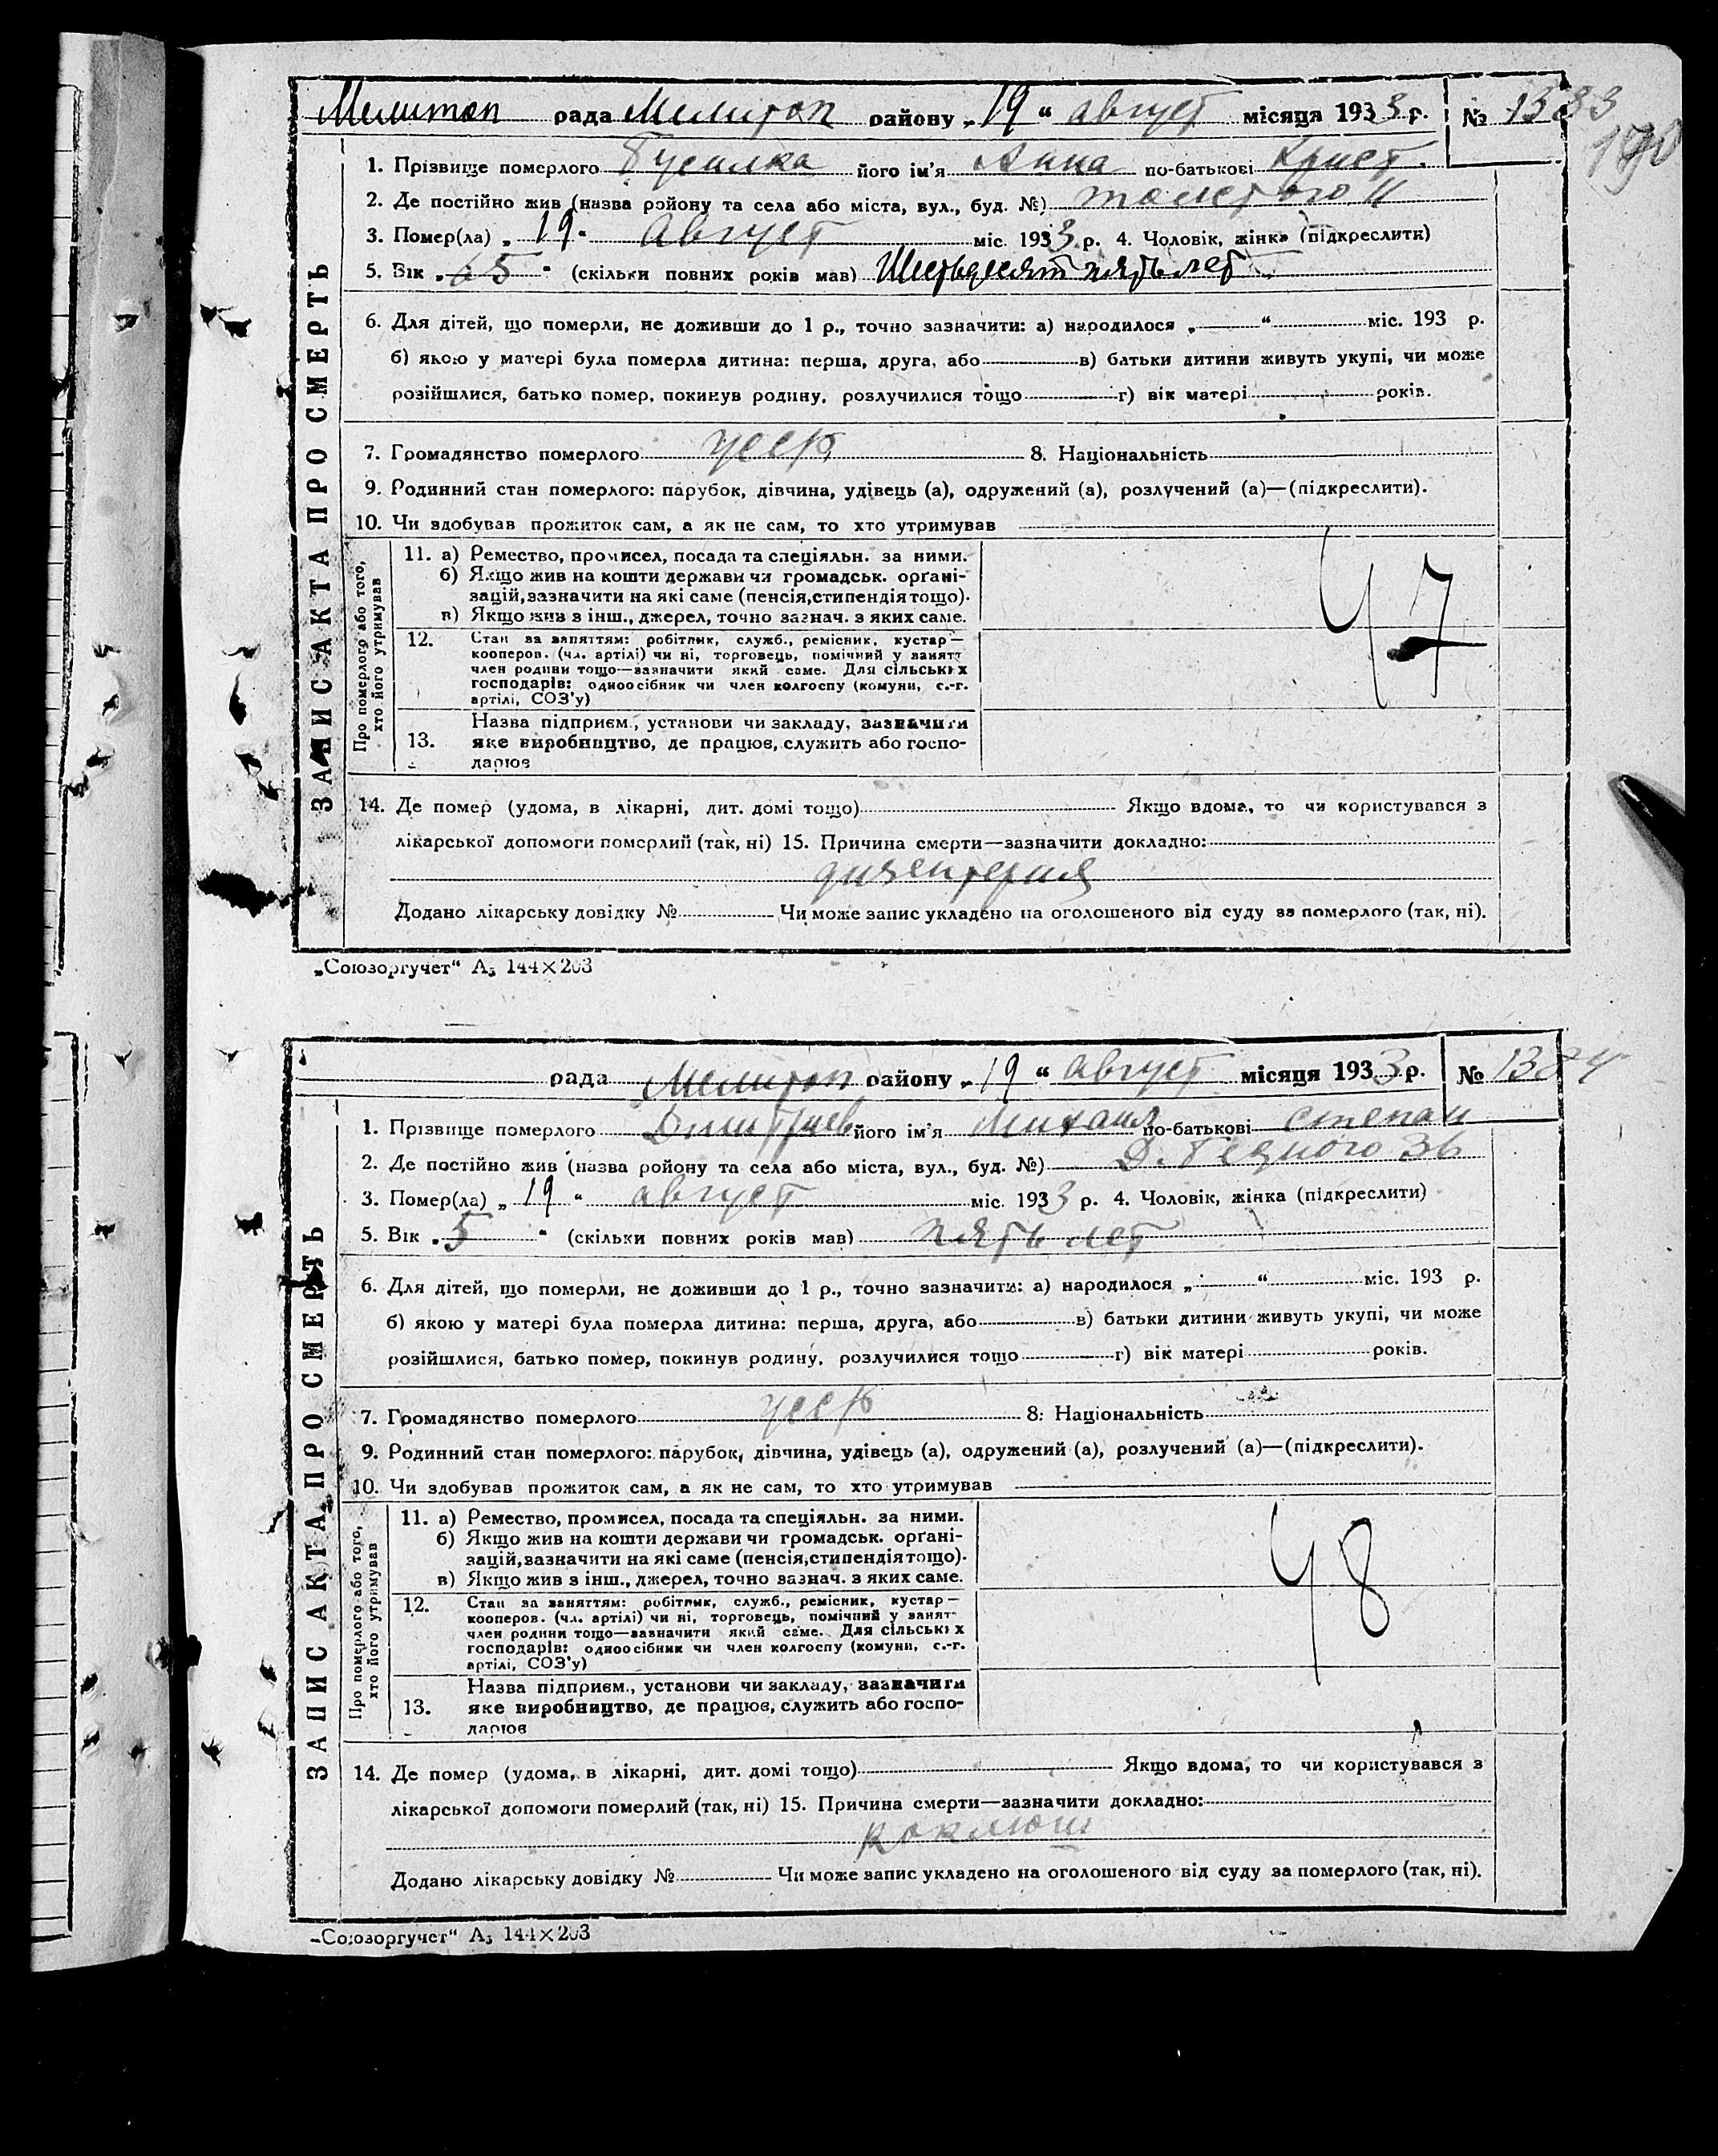 Мелитоп рада Мелитоп району „19“ август місяця 1933 р. № 1383
190
1. Прізвище померлого його ім'я Анна по-батькові Крист.
2. Де постійно жив (назва району та села або міста, вул., буд. №) Толстого 11
3. Помер(ла) „19“ Август міс. 1933 р. 4. Чоловік, жінка (підкреслити)
5. Вік „65“ (скільки повних років мав) Шестьдесят пять лет
6. Для дітей, що померли, не доживши до 1 р., точно зазначити: а) народилося „ “ міс. 193 р.
б) якою у матері була померла дитина: перша, друга, або в) батьки дитини живуть укупі, чи може
розійшлися, батько помер, покинув родину, розлучилися тощо г) вік матері років.
7. Громадянство померлого усср 8. Національність
9. Родинний стан померлого: парубок, дівчина, удівець (а), одружений (а), розлучений (а)—(підкреслити).
10. Чи здобував прожиток сам, а як не сам, то хто утримував
Про померлого або того, хто його утримував
11. а) Ремество, промисел, посада та спеціяльн. за ними.
б) Якщо жив на кошти держави чи громадськ. орґані-
зацій, зазначити на які саме (пенсія, стипендія тощо).
в) Якщо жив з інш., джерел, точно зазнач. з яких саме.
47
12. Стан за заняттям: робітник, служб., ремісник, кустар—
кооперов. (чл. артілі) чи ні, торговець, помічний у занятт
член родини тощо—зазначити який саме. Для сільських
господарів: одноосібник чи член колгоспу (комуни, с.-г.
артілі, СОЗ'у)
Назва підприєм., установи чи закладу, зазначити
13. яке виробництво, де працює, служить або госпо-
дарює
14. Де помер (удома, в лікарні, дит. домі тощо) Якщо вдома, то чи користувався з
лікарської допомоги померлий (так, ні) 15. Причина смерти—зазначити докладно:
дизентерия
Додано лікарську довідку № Чи може запис укладено на оголошеного від суду за померлого (так, ні).
ЗАПИС АКТА ПРО СМЕРТЬ
„Союзоргучет“ А₅ 144×203
рада Мелитоп району „19“ август місяця 1933 р. № 1384
1. Прізвище померлого Дмитриев його ім'я Михаил по-батькові степан
2. Де постійно жив (назва району та села або міста, вул., буд. №) Д. Бедного 36
3. Помер(ла) „19“ август міс. 1933 р. 4. Чоловік, жінка (підкреслити)
5. Вік „5“ (скільки повних років мав) пять лет
6. Для дітей, що померли, не доживши до 1 р., точно зазначити: а) народилося „ “ міс. 193 р.
б) якою у матері була померла дитина: перша, друга, або в) батьки дитини живуть укупі, чи може
розійшлися, батько помер, покинув родину, розлучилися тощо г) вік матері років.
7. Громадянство померлого усср 8. Національність
9. Родинний стан померлого: парубок, дівчина, удівець (а), одружений (а), розлучений (а)—(підкреслити).
10. Чи здобував прожиток сам, а як не сам, то хто утримував
Про померлого або того, хто його утримував
11. а) Ремество, промисел, посада та спеціяльн. за ними.
б) Якщо жив на кошти держави чи громадськ. орґані-
зацій, зазначити на які саме (пенсія, стипендія тощо).
в) Якщо жив з інш., джерел, точно зазнач. з яких саме.
48
12. Стан за заняттям: робітник, служб., ремісник, кустар—
кооперов. (чл. артілі) чи ні, торговець, помічний у занят
член родини тощо—зазначити який саме. Для сільських
господарів: одноосібник чи член колгоспу (комуни, с.-г.
артілі, СОЗ'у)
Назва підприєм., установи чи закладу, зазначити
13. яке виробництво, де працює, служить або госпо-
дарює
14. Де помер (удома, в лікарні, дит. домі тощо) Якщо вдома, то чи користувався з
лікарської допомоги померлий (так, ні) 15. Причина смерти—зазначити докладно:
коклюш
Додано лікарську довідку № Чи може запис укладено на оголошеного від суду за померлого (так, ні).
ЗАПИС АКТА ПРО СМЕРТЬ
„Союзоргучет“ А₅ 144×203